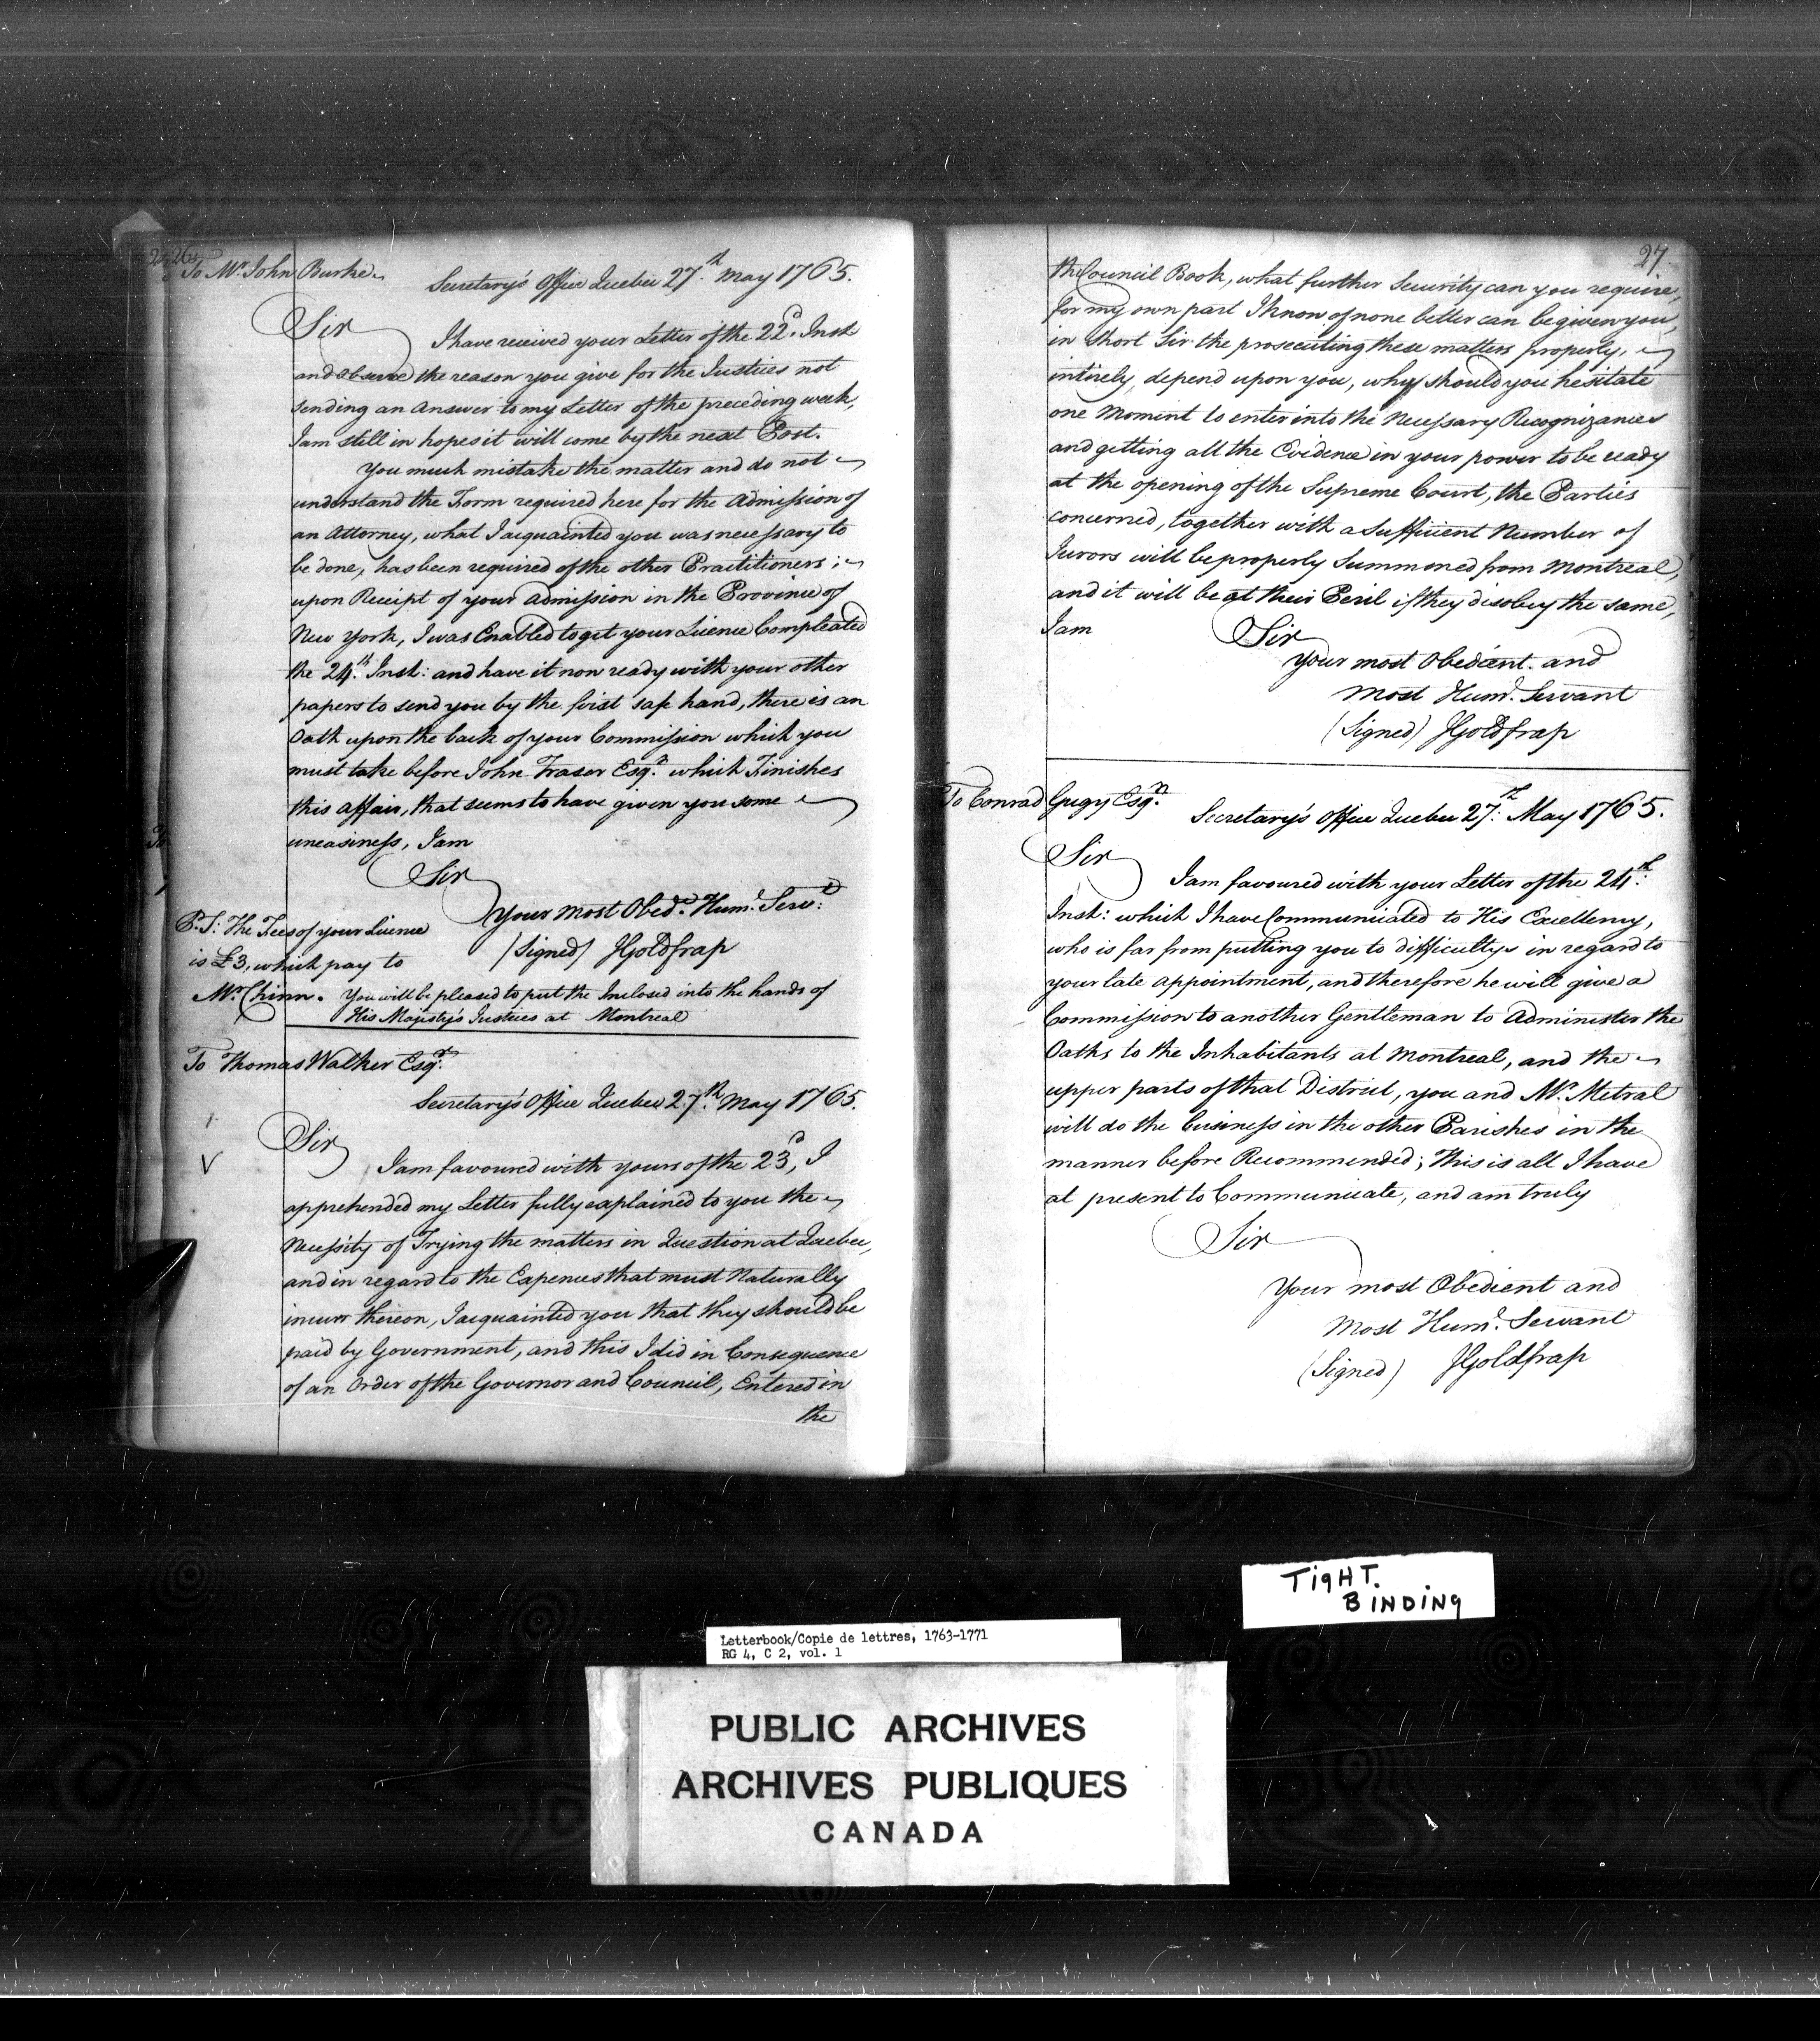 26
To Mr. John Burke
Secretary's Office Quebec 27.th May 1765.
Sir
I have received your Letter of the 22d. Inst
and observe the reason you give for the Justices not
sending an Answer to my Letter of the preceding week,
I am still in hopes it will come by the next Post.
You much mistake the matter and do not
understand the Form required here for the Admission of
an Attorney, what I acquainted you was necessary to
be done, has been required of the other Practitioners;
upon Receipt of your Admission in the Province of
New York, I was Enabled to get your Licence Compleated
the 24.th Inst: and have it now ready with your other
papers to send you by the first safe hand, there is an
Oath upon the back of your Commission which you
must take before John Fraser Esqr. which Finishes
this affair, that seems to have given you some
uneasiness, I am
Sir
Your most Obedt. Hum. Servt:
(Signed) JGoldfrap
P.S: The Fees of your Licence
is £3, which pay to
Mr. Chinn. You will be pleased to put the Inclosed into the hands of
His Majesty's Justices at Montreal
To Thomas Walker Esqr:
Secretary's Office Quebec 27.th May 1765.
Sir
I am favoured with yours of the 23d, I
apprehended my Letter fully explained to you the
Necessity of Trying the matters in Question at Quebec,
and in regard to the Expences that must Naturally
incurr thereon, I acquainted you that they should be
paid by Government, and this I did in Consequence
of an Order of the Governor and Council, Entered in
the
27.
the Council Book, what further Security can you require,
for my own part I know of none better can be given you,
in short Sir the prosecuting these matters properly,
intirely depend upon you, why should you hesitate
one Moment to enter into the Necessary Recognizances
and getting all the Evidence in your power to be ready
at the opening of the Supreme Court, the Parties
concerned, together with a Sufficient Number of
Jurors will be properly Summoned from Montreal,
and it will be at their Peril if they disobey the same,
I am
Sir
Your most Obedient. and
most Humd. Servant
(Signed) JGoldfrap
To Conrad Gugy Esqr.
Secretary's Office Quebec 27.th May 1765.
Sir
I am favoured with your Letter of the 24.th
Inst: which I have Communicated to His Excellency,
who is far from putting you to difficultys in regard to
your late appointment, and therefore he will give a
Commission to another Gentleman to Administer the
Oaths to the Inhabitants at Montreal, and the
upper parts of that District, you and Mr. Metral
will do the business in the other Parishes in the
manner before Recommended; This is all I have
at present to Communicate, and am truly
Sir
Your most Obedient and
Most Humd. Servant
(Signed) JGoldfrap
TIGHT.
BINDING
Letterbook/Copie de lettres, 1763-1771
RG 4, C 2, vol. 1
PUBLIC ARCHIVES
ARCHIVES PUBLIQUES
CANADA